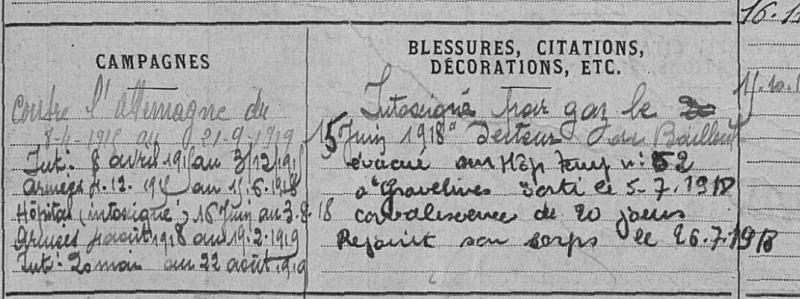 16.1
CAMPAGNES
contre l'allemagne du
8-4-1918 au 21-9-1919
Int: 8 avril 191 au 3/12/191
armées 4.12.191 au 15.6.1918
Hôpital (intoxiqué) 16 Juin au 3.8.18
Armées 4 août 1918 au 19.2.1919
Int: 20 mai au 22 août 1919
BLESSURES, CITATIONS,
DÉCORATIONS, ETC.
Intoxiqué par gaz le
15 Juin 1918 Secteur de Bailleul
évacué sur Hôp temp n: 52
à Gravelines Sorti le 5-7-1918
convalescence de 20 jours
Rejoint son corps le 26.7.1918